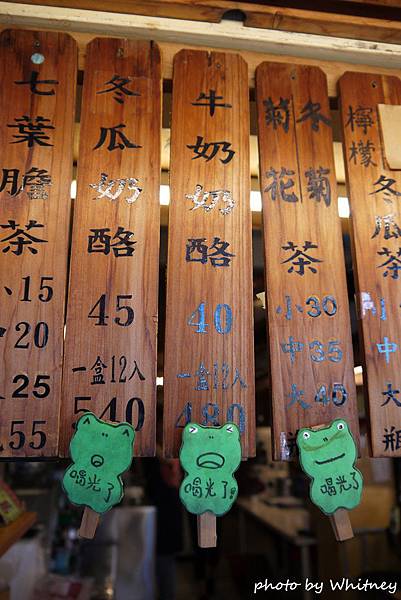 七葉膽茶
小15
中20
25
55
冬瓜奶酪
45
一盒12入
540
牛奶奶酪
40
一盒12入
480
冬菊
菊花
茶
小30
中35
大40
檸檬
冬瓜茶
小
中
大
瓶
喝光了
喝光了
喝光了
photo by Whitney